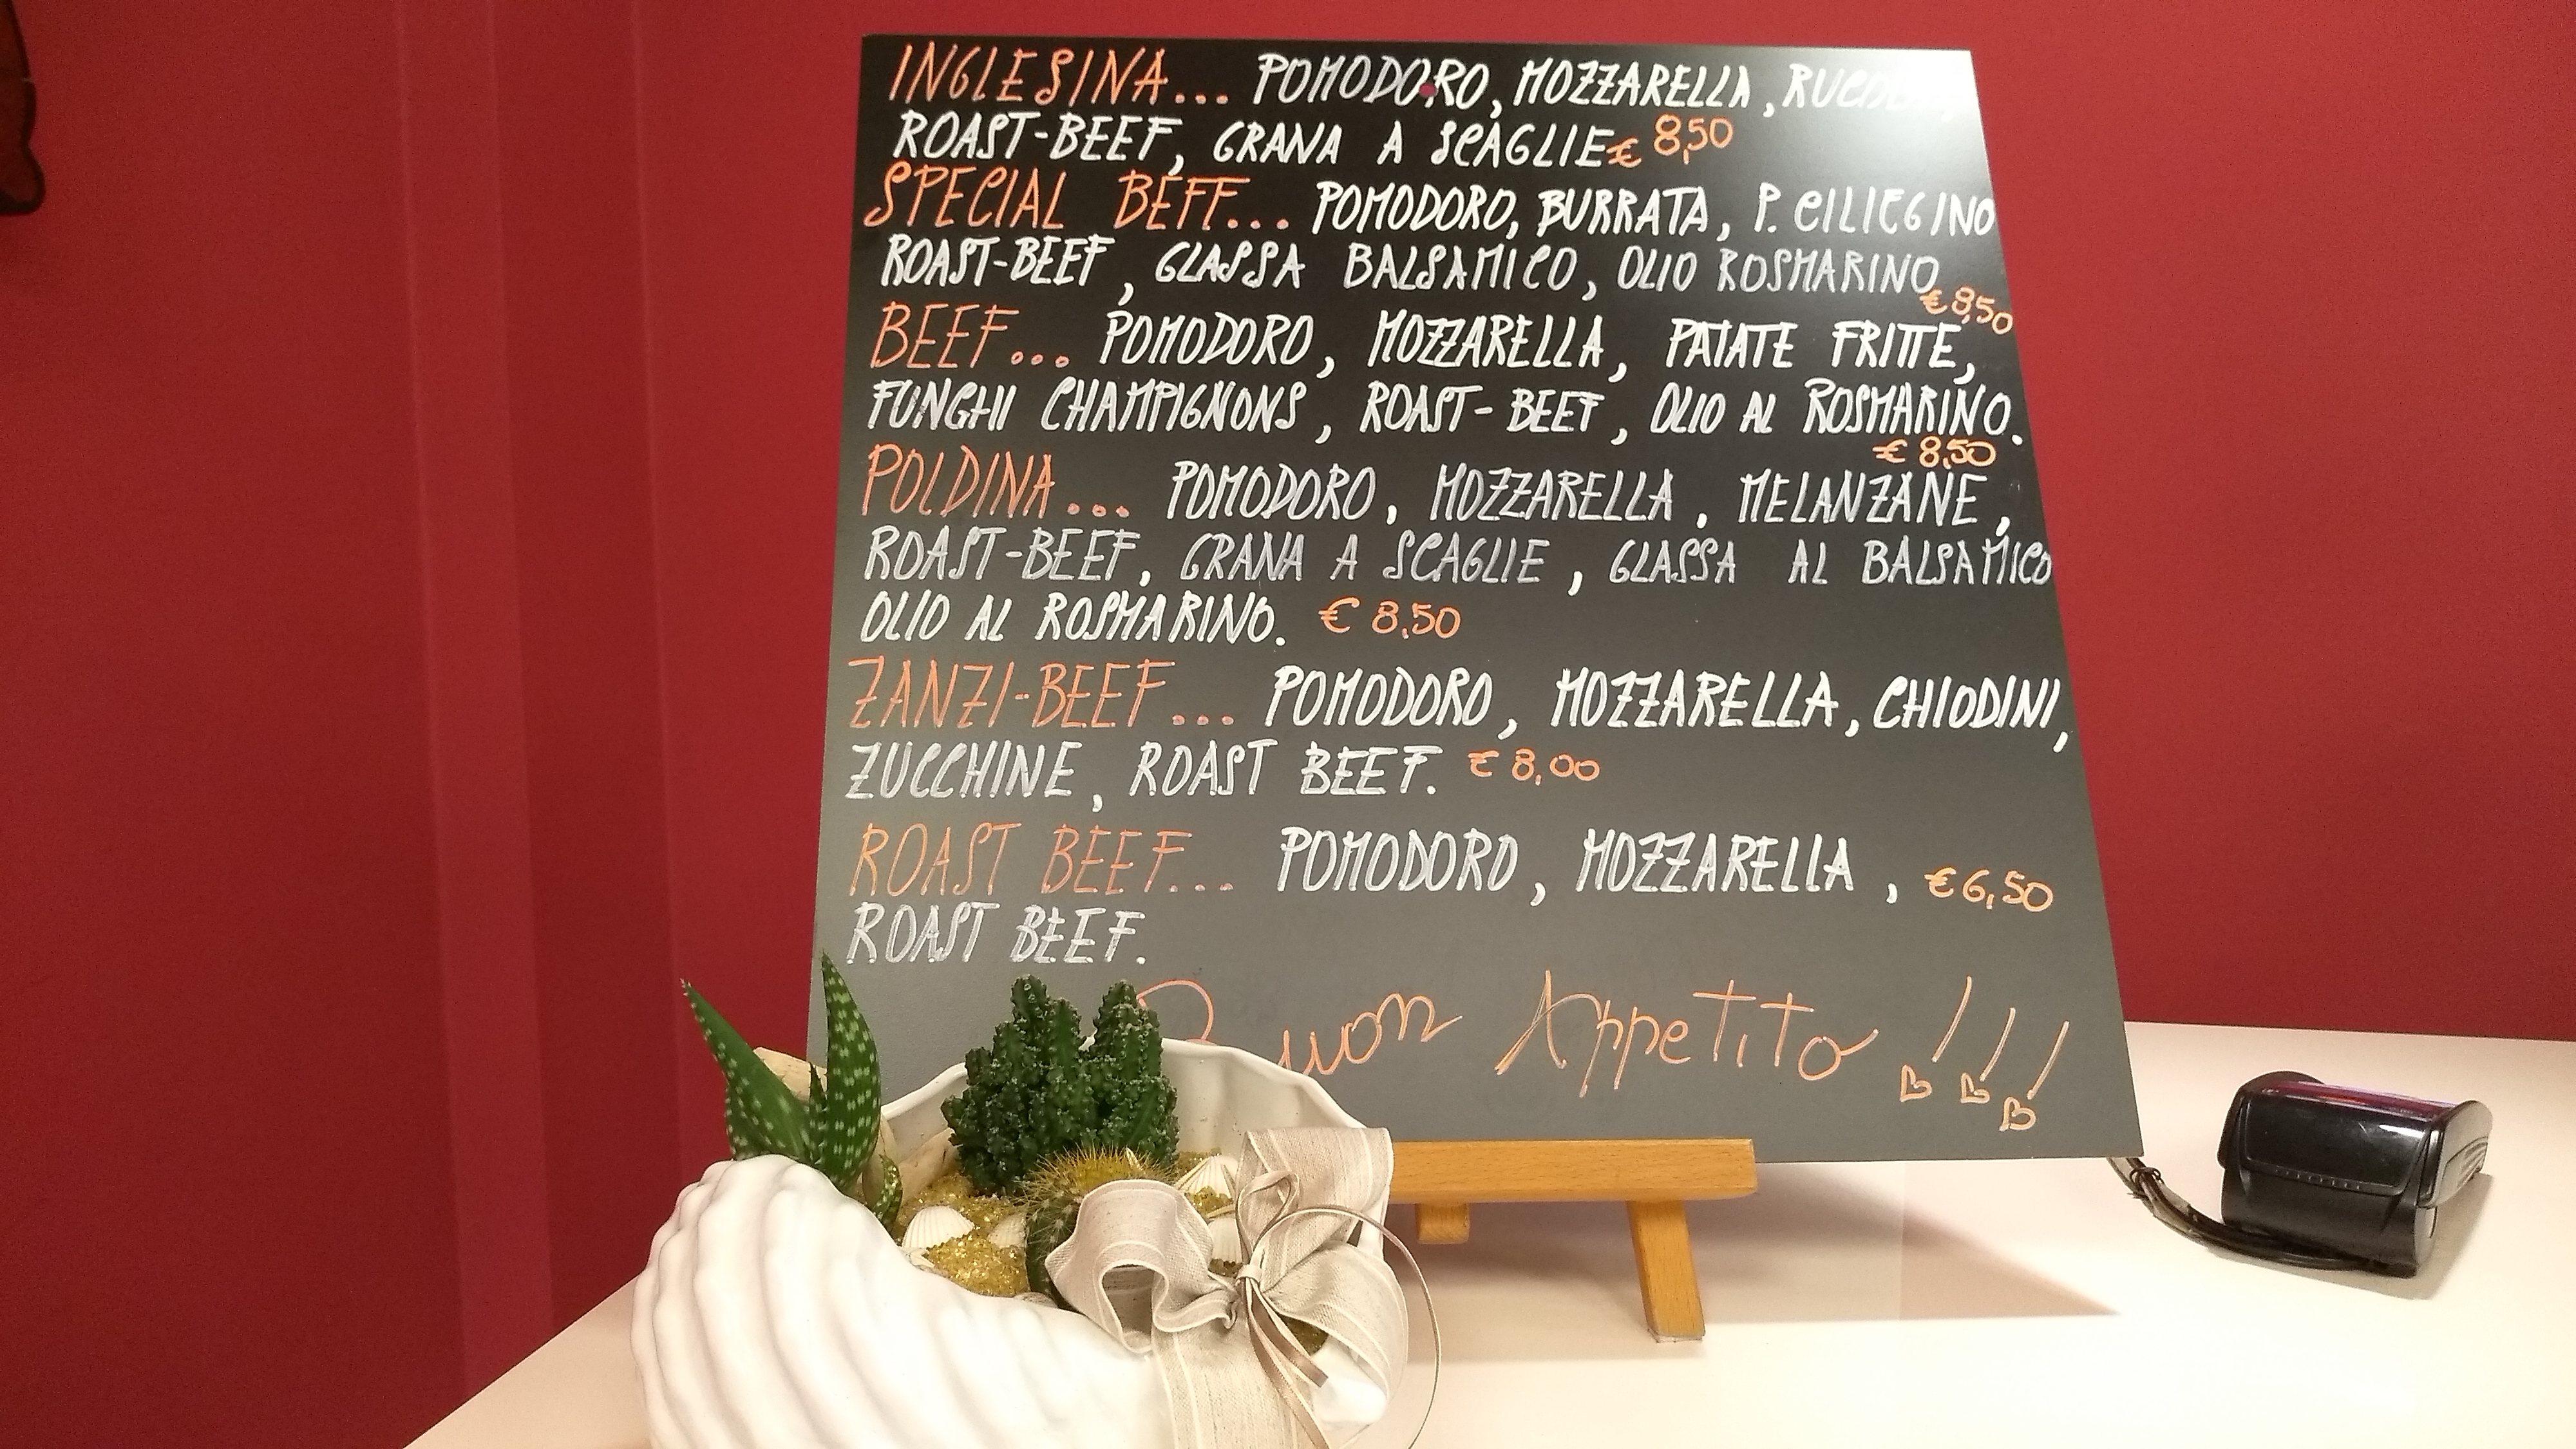 INGLESINA... POMODORO, MOZZARELLA, 
ROAST-BEEF, GRANA A SCAGLIE € 8,50
SPECIAL BEFF... POMODORO, BURRATA, P. CILIEGINO
ROAST-BEEF, GLASSA BALSAMICO, OLIO ROSMARINO
€ 8,50
BEEF... POMODORO, MOZZARELLA, PATATE FRITTE,
FUNGHI CHAMPIGNONS, ROAST-BEEF, OLIO AL ROSMARINO.
€ 8,50
POLDINA... POMODORO, MOZZARELLA, MELANZANE,
ROAST-BEEF, GRANA A SCAGLIE, GLASSA AL BALSAMICO
OLIO AL ROSMARINO. € 8,50
ZANZI-BEEF... POMODORO, MOZZARELLA, CHIODINI,
ZUCCHINE, ROAST BEEF. € 8,00
ROAST BEEF... POMODORO, MOZZARELLA, € 6,50
ROAST BEEF.
Buon Appetito !!!